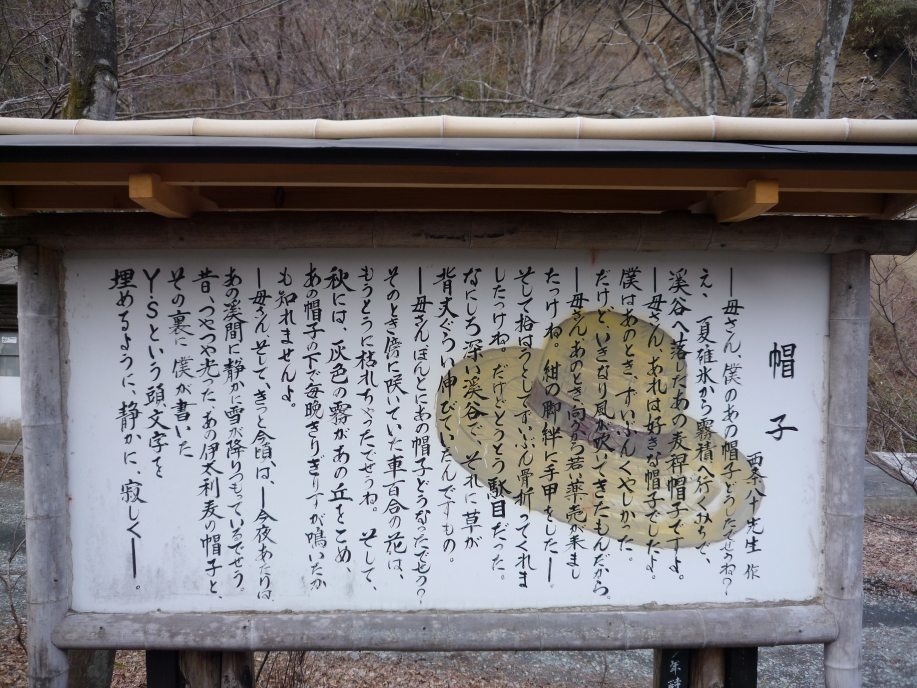 帽子
西条八十先生 作
―母さん、僕のあの帽子どうしたでせうね?
え、夏碓氷から霧積へ行くみちで、
渓谷へ落したあの麦稈帽子ですよ。
―母さん、あれは好きな帽子でしたよ。
僕はあのとき、ずいぶんくやしかった、
だけど、いきなり風が吹いてきたもんだから。
―母さん、あのとき向うから若い薬売が来まし
たっけね。紺の脚絆に手甲をした―
そして拾はうとしてずいぶん骨折ってくれま
したっけね、だけどとうとう駄目だった。
なにしろ深い渓谷で、それに草が
背丈ぐらい伸びていたんですもの。
―母さんほんとにあの帽子どうなったでせう?
そのとき傍に咲いていた車百合の花は、
もうとうに枯れちゃったでせうね。そして、
秋には、灰色の霧があの丘をこめ、
あの帽子の下で毎晩きりぎりすが鳴いたか
も知れませんよ。
―母さん、そして、きっと今頃は、―今夜あたりは、
あの渓間に、静かに雪が降りつもっているでせう。
昔、つやつや光った、あの伊太利麦の帽子と、
その裏に僕が書いた
Y・Sという頭文字を
埋めるように、静かに、寂しく―。